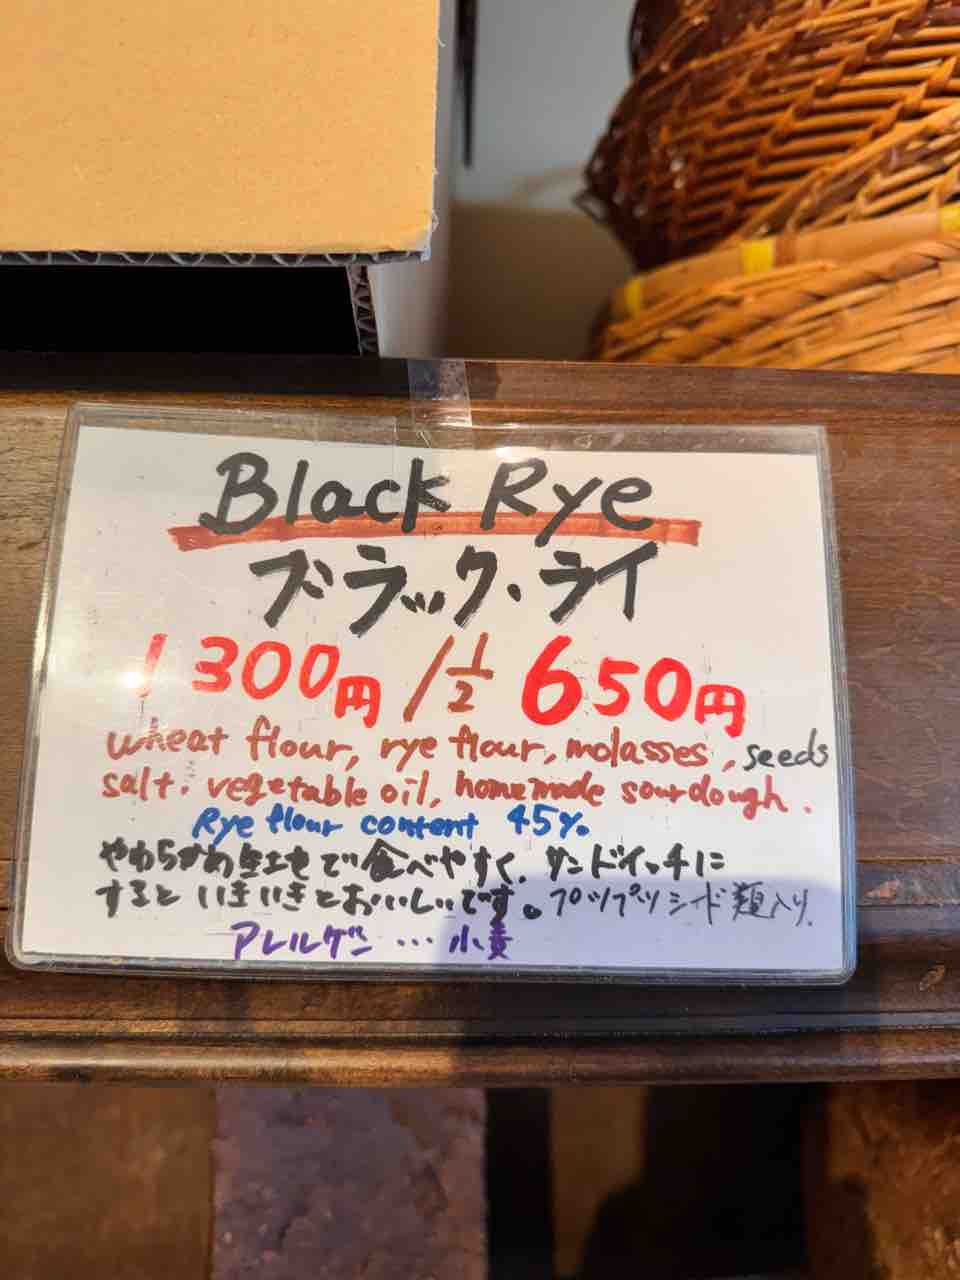 Black Rye
ブラック・ライ
1300円/½ 650円
wheat flour, rye flour, molasses, seeds
salt. vegetable oil, homemade sourdough.
Rye flour content 45%.
やわらかめ生地で食べやすく、サンドイッチに
すると いきいきとおいしいです。プツプツシード類入り.
アレルゲン … 小麦